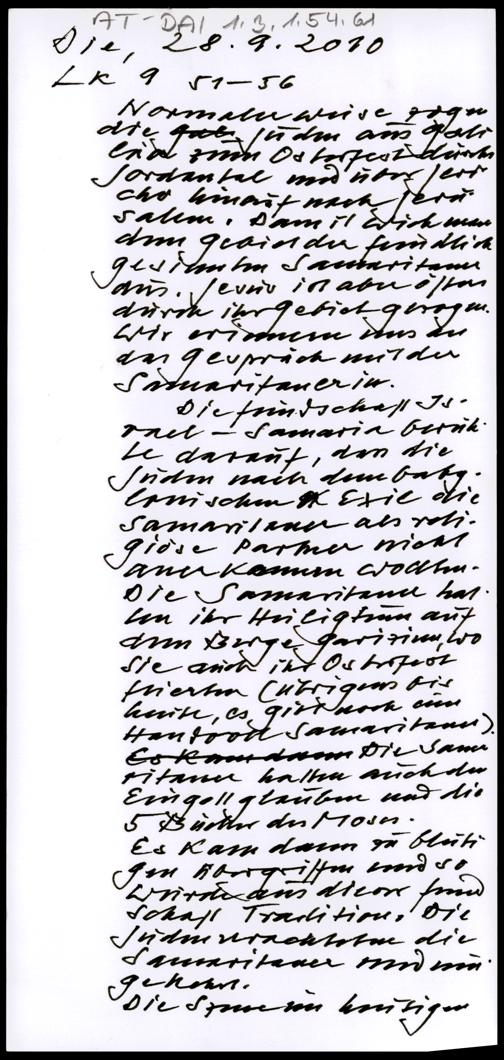 AT-DAI 1.3.1.54.61
Die, 28.9.2010
Lk 9 51–56
Normalerweise zogen
die Juden aus Gali
läa zum Osterfest durchs
Jordantal und über Jeri
cho hinauf nach Jeru
salem. Damit wich man
dem Gebiet der feindlich
gesinnten Samaritaner
aus. Jesus ist aber öfter
durch ihr Gebiet gezogen.
Wir erinnern uns an
das Gespräch mit der
Samaritanerin.
Die Feindschaft Is-
rael – Samaria beruh
te darauf, das die
Juden nach dem baby-
lonischen Exil die
Samaritaner als reli-
giöse Partner nicht
anerkennen wollten.
Die Samaritaner hat
ten ihr Heiligtum auf
dem Berge Garizim, wo
sie auch ihr Osterfest
feierten (übrigens bis
heute, es gibt noch eine
Handvoll Samaritaner).
Es kam dann Die Sama
ritaner hatten auch den
Eingottglauben und die
5 Bücher des Moses.
Es kam dann zu bluti
gen Übergriffen und so
wurde aus dieser Feind
schaft Tradition. Die
Juden verachteten die
Samaritaner und um
gekehrt.
Die Szene im heutigen